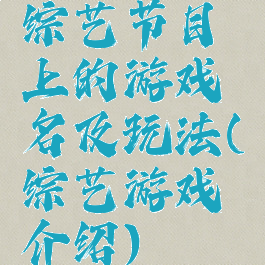 综艺节目
上的游戏
名及玩法(
综艺游戏
介绍)